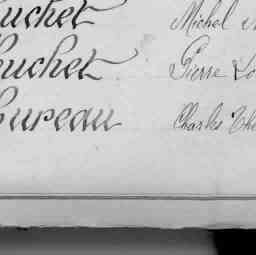 ouchet Michel
ouchet Pierre Lo
Bureau Charles Thé